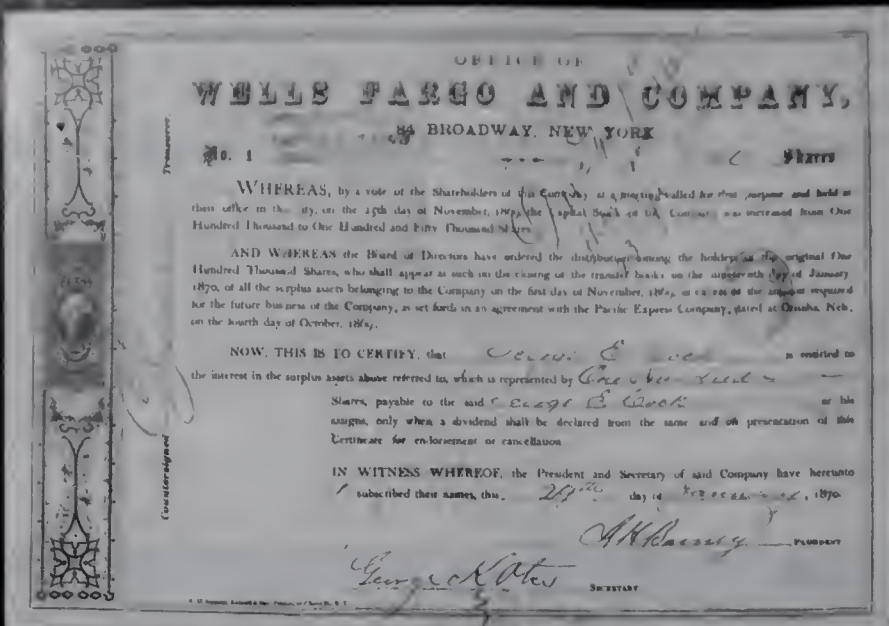 OFFICE OF
WELLS FARGO AND COMPANY,
84 BROADWAY, NEW YORK
No. 1 Shares
WHEREAS, by a vote of the Shareholders of this Company at a meeting called for that purpose and held at
their office in the city, on the 25th day of November, the Capital Stock of the Company was increased from One
Hundred Thousand to One Hundred and Fifty Thousand Shares
AND WHEREAS the Board of Directors have ordered the distribution among the holders of the original One
Hundred Thousand Shares, who shall appear as such on the closing of the transfer books on the nineteenth day of January
1870, of all the surplus assets belonging to the Company on the first day of November, in excess of the amount required
for the future business of the Company, as set forth in an agreement with the Pacific Express Company, dated at Omaha, Neb,
on the fourth day of October,
NOW, THIS IS TO CERTIFY, that George E Cook is entitled to
the interest in the surplus assets above referred to, which is represented by One Hundred
Shares, payable to the said George E Cook or his
assigns, only when a dividend shall be declared from the same and on presentation of this
Certificate for endorsement or cancellation
IN WITNESS WHEREOF, the President and Secretary of said Company have hereunto
subscribed their names, this, 24th day of, 1870
A H Barney PRESIDENT
George K Otis SECRETARY
Treasurer.
Countersigned